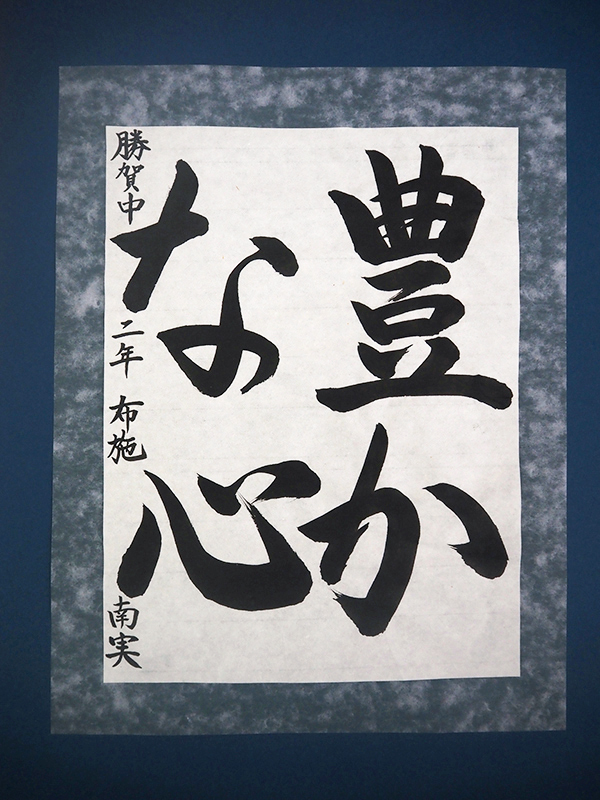 豊か
な心
勝賀中 二年 布施 南実